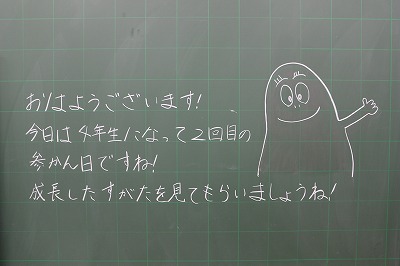 おはようございます!
今日は4年生になって2回目の
参かん日ですね!
成長したすがたを見てもらいましょうね!